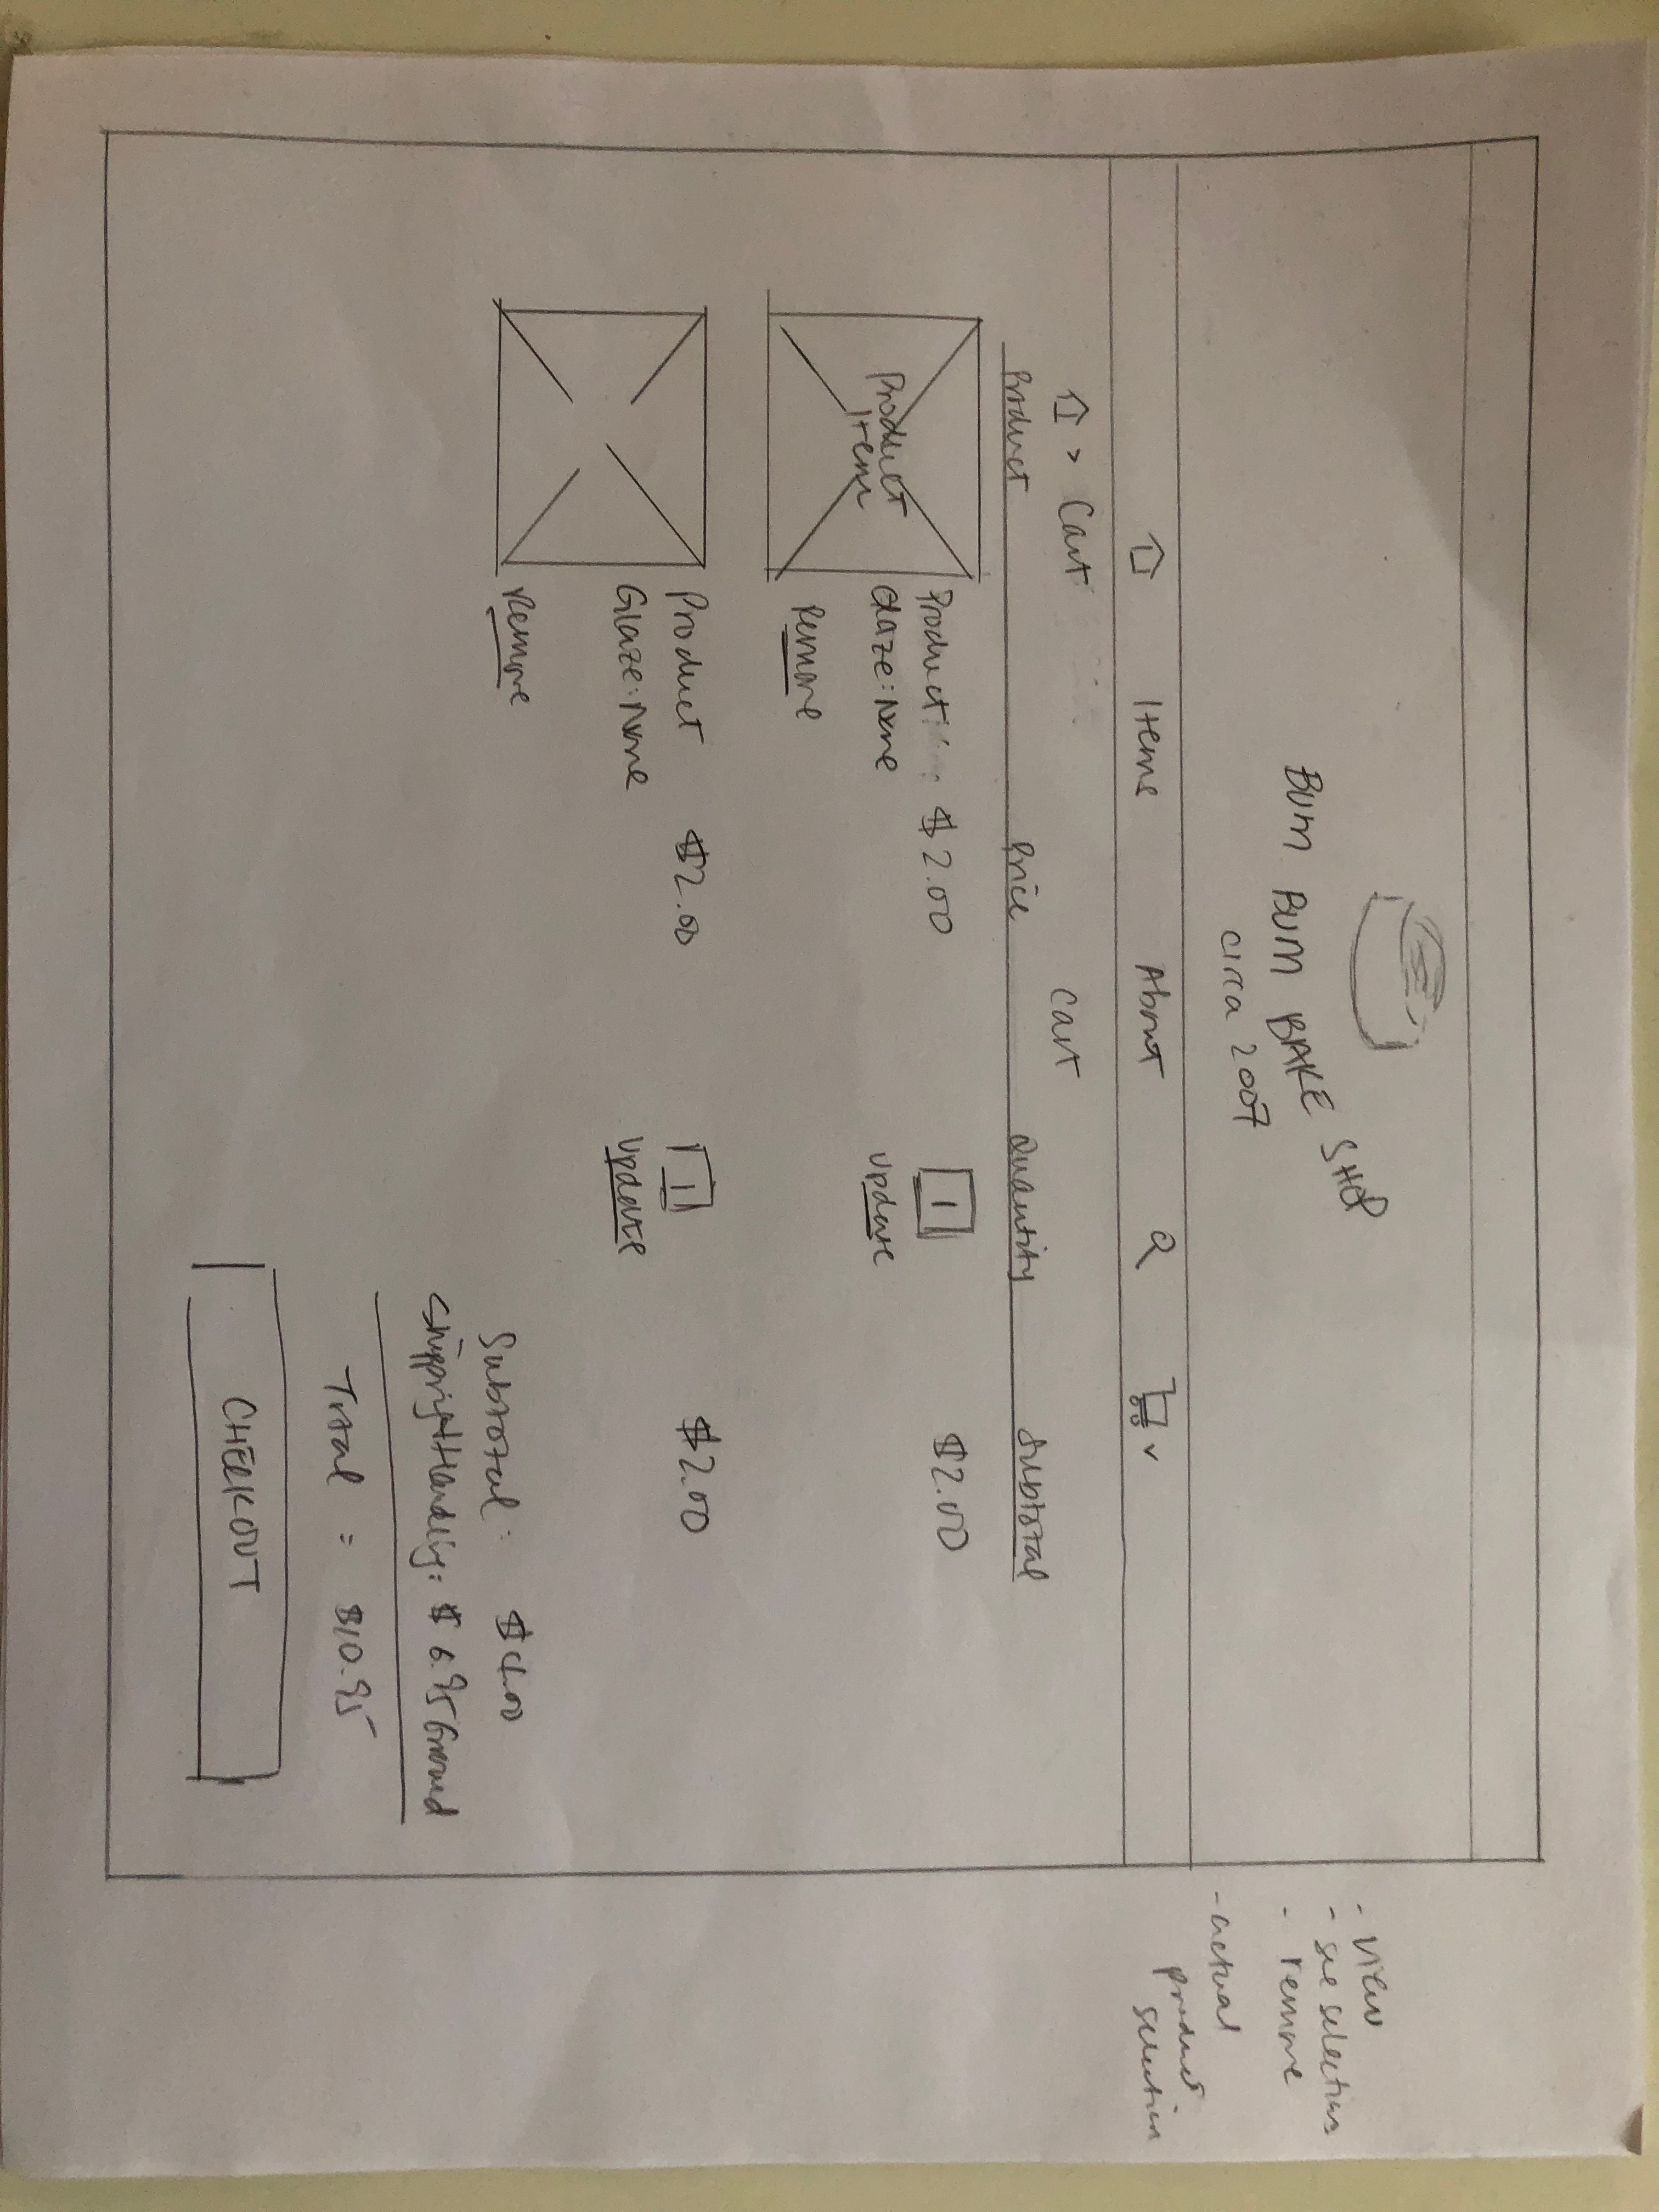 BUM BUM BAKE SHOP
circa 2007
Items About
> Cart
Cart
Product Price Quantity Subtotal
Product Item
Product $2.00 1 $2.00
Glaze: None update
Remove
Product $2.00 1 $2.00
Glaze: None update
Remove
Subtotal: $4.00
Shipping+Handling: $6.95 Ground
Total = $10.95
CHECKOUT
- view
- see selection
- remove
- actual
product
selection